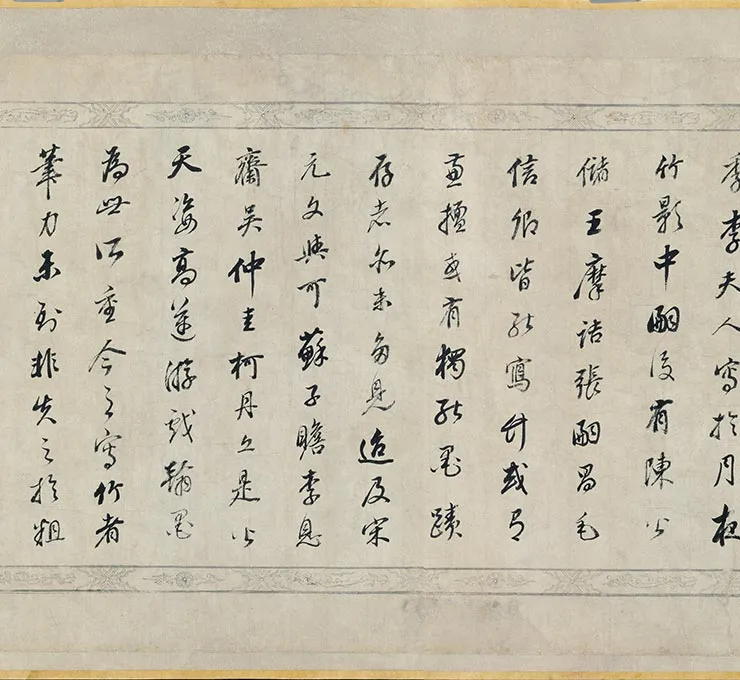 季李夫人寫於月夜
竹影中嗣後有陳公
儲王摩詰張嗣昌毛
信卿皆能寫竹或有
兼擅或有獨能墨蹟
存者亦未多見迨及宋
元文與可蘇子瞻李息
齋吳仲圭柯丹丘是以
天姿高邁游戲翰墨
為世所重今之寫竹者
筆力未到非失之於粗